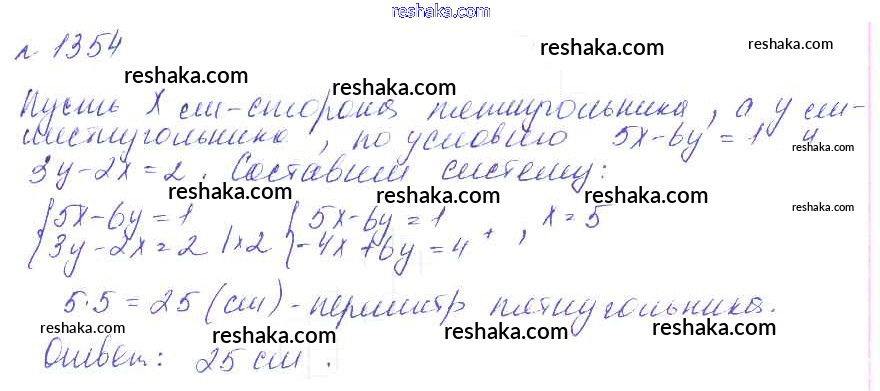 reshaka.com
№ 1354
reshaka.com reshaka.com reshaka.com
Пусть x см-сторона пятиугольника, а y см-
reshaka.com reshaka.com
шестиугольника, по условию 5x-6y=1 и
reshaka.com
3y-2x=2. Составим систему:
reshaka.com reshaka.com reshaka.com
{5x-6y=1 {5x-6y=1 , x=5
{3y-2x=2 |×2 {-4x+6y=4 +
reshaka.com reshaka.com
5·5=25 (см)-периметр пятиугольника.
reshaka.com reshaka.com reshaka.com
Ответ: 25 см.
reshaka.com reshaka.com